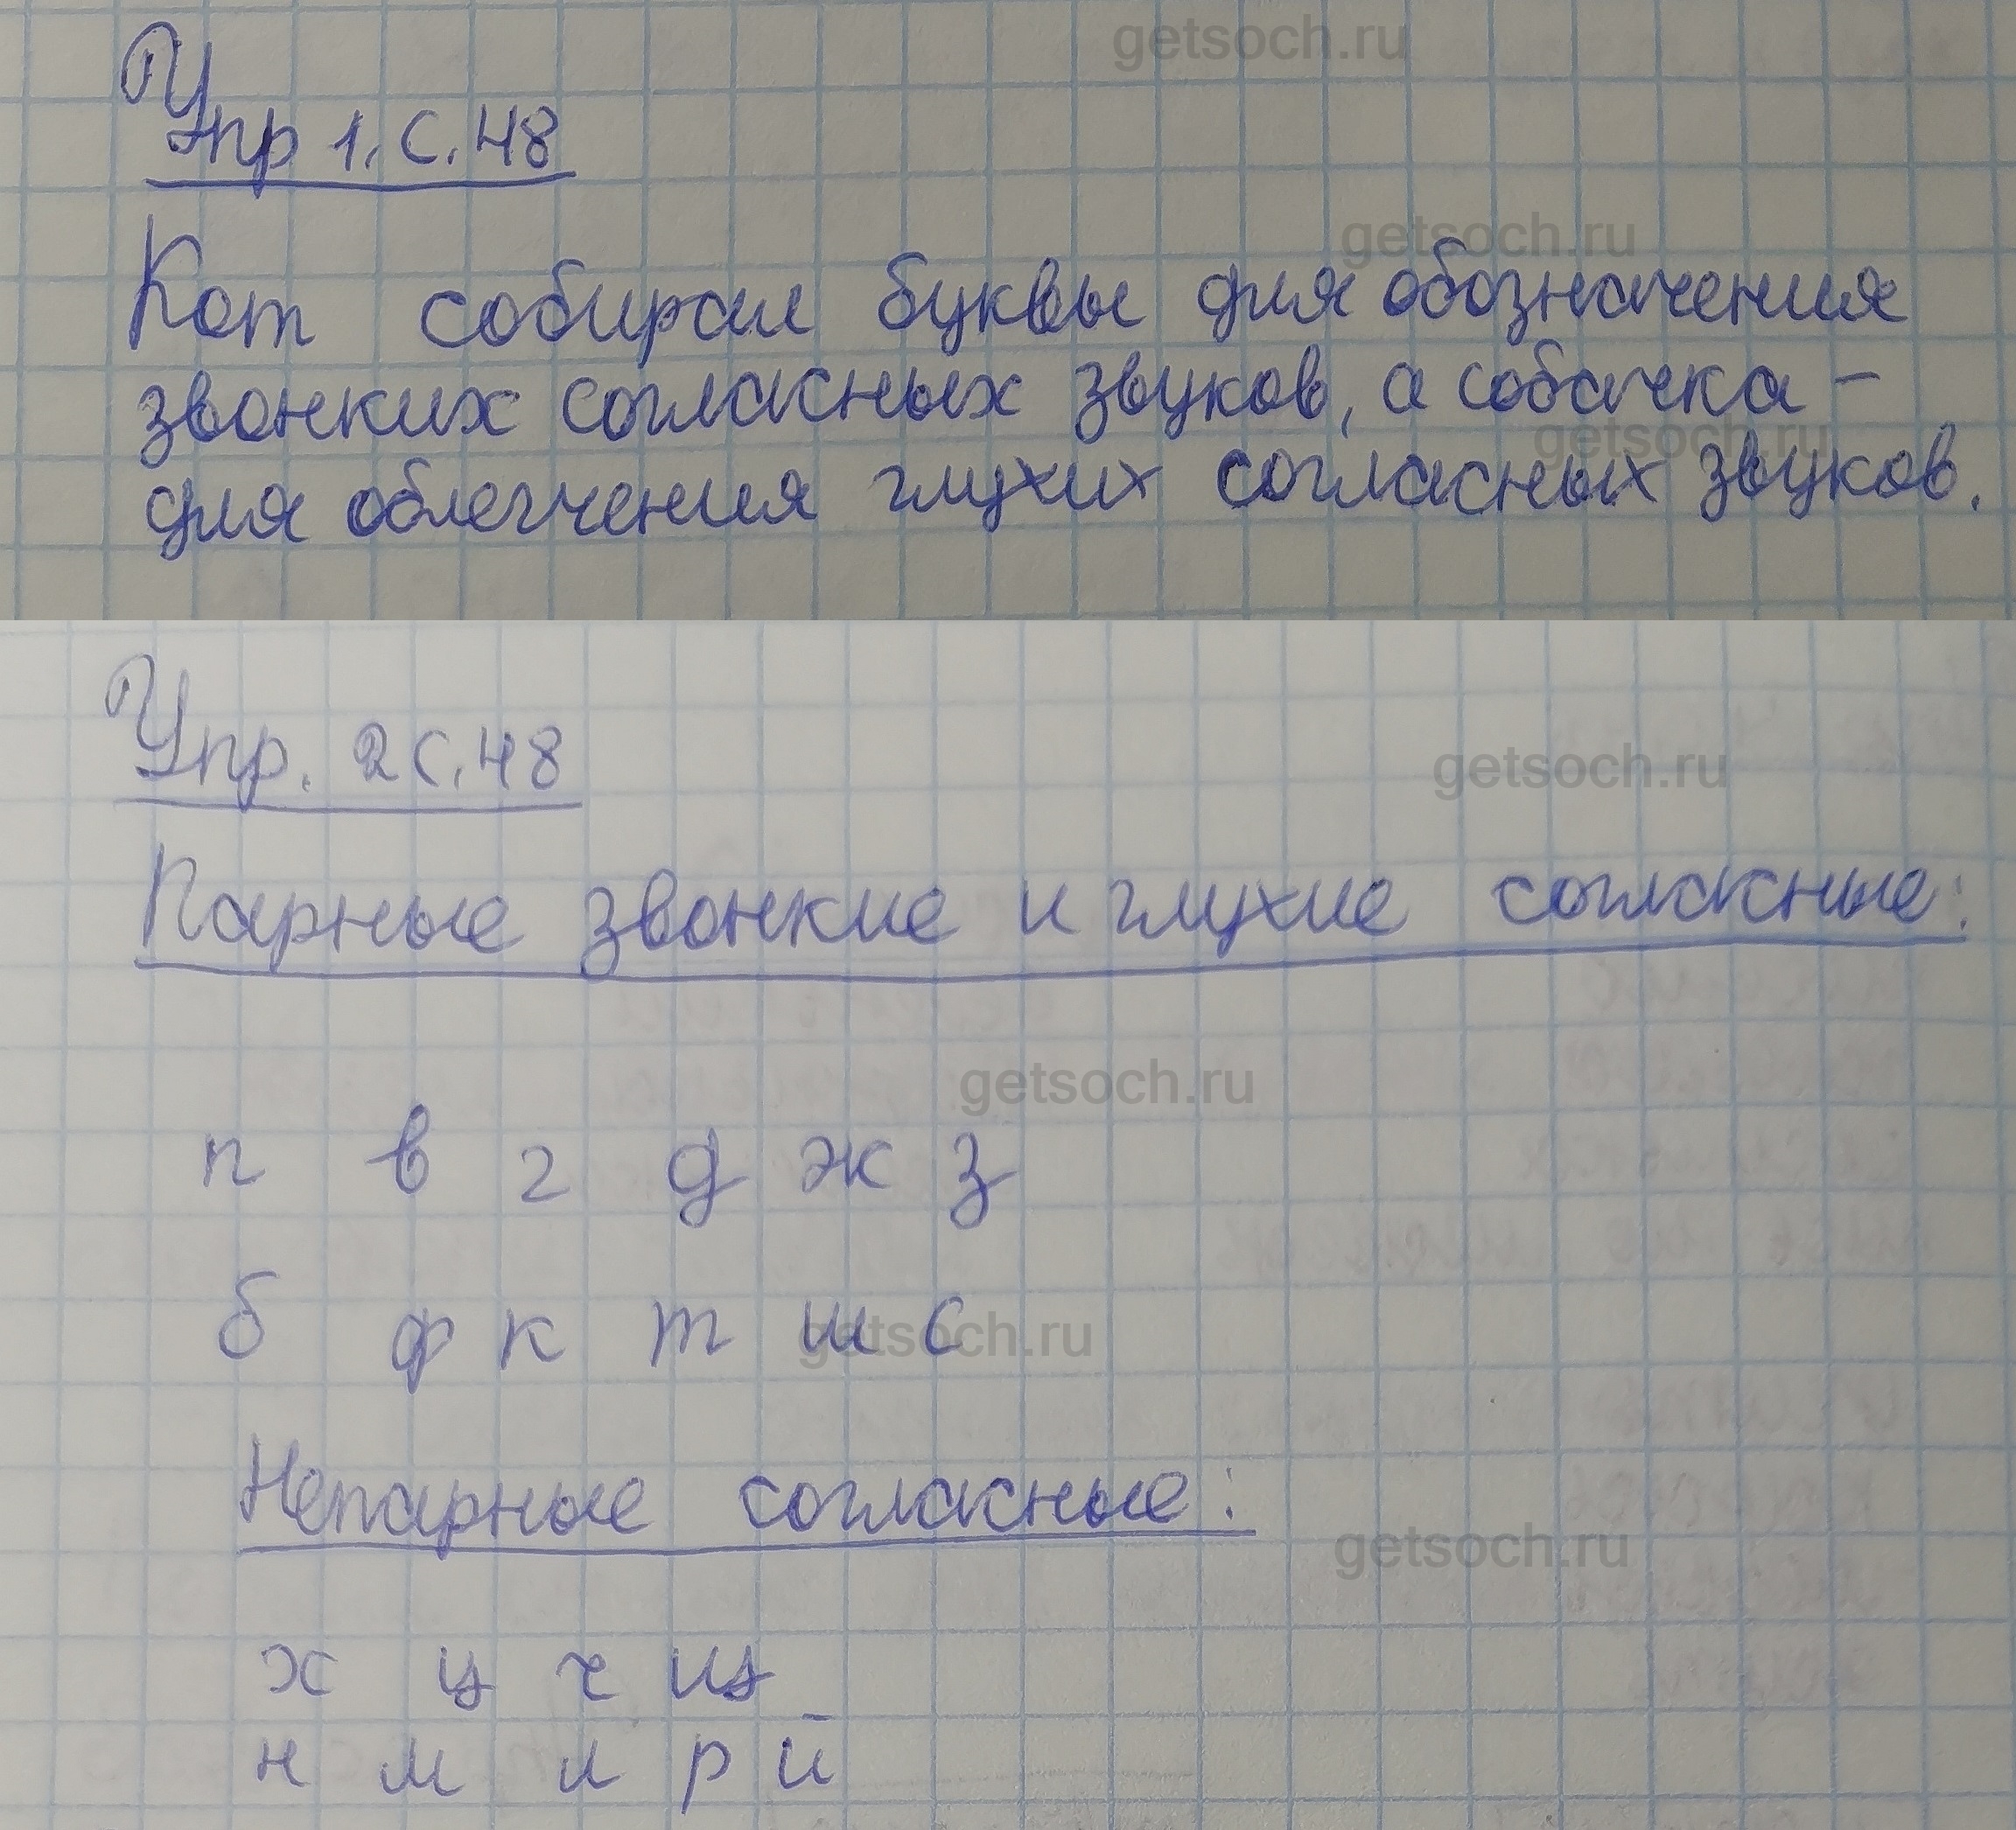 getsoch.ru
Упр 1. с. 48
getsoch.ru
Кот собирал буквы для обозначения
звонких согласных звуков, а собачка –
getsoch.ru
для облегчения глухих согласных звуков.
Упр. 2 с. 48
getsoch.ru
Парные звонкие и глухие согласные:
getsoch.ru
п в г д ж з
б ф к т ш с
getsoch.ru
Непарные согласные:
getsoch.ru
х ц ч щ
н м л р й